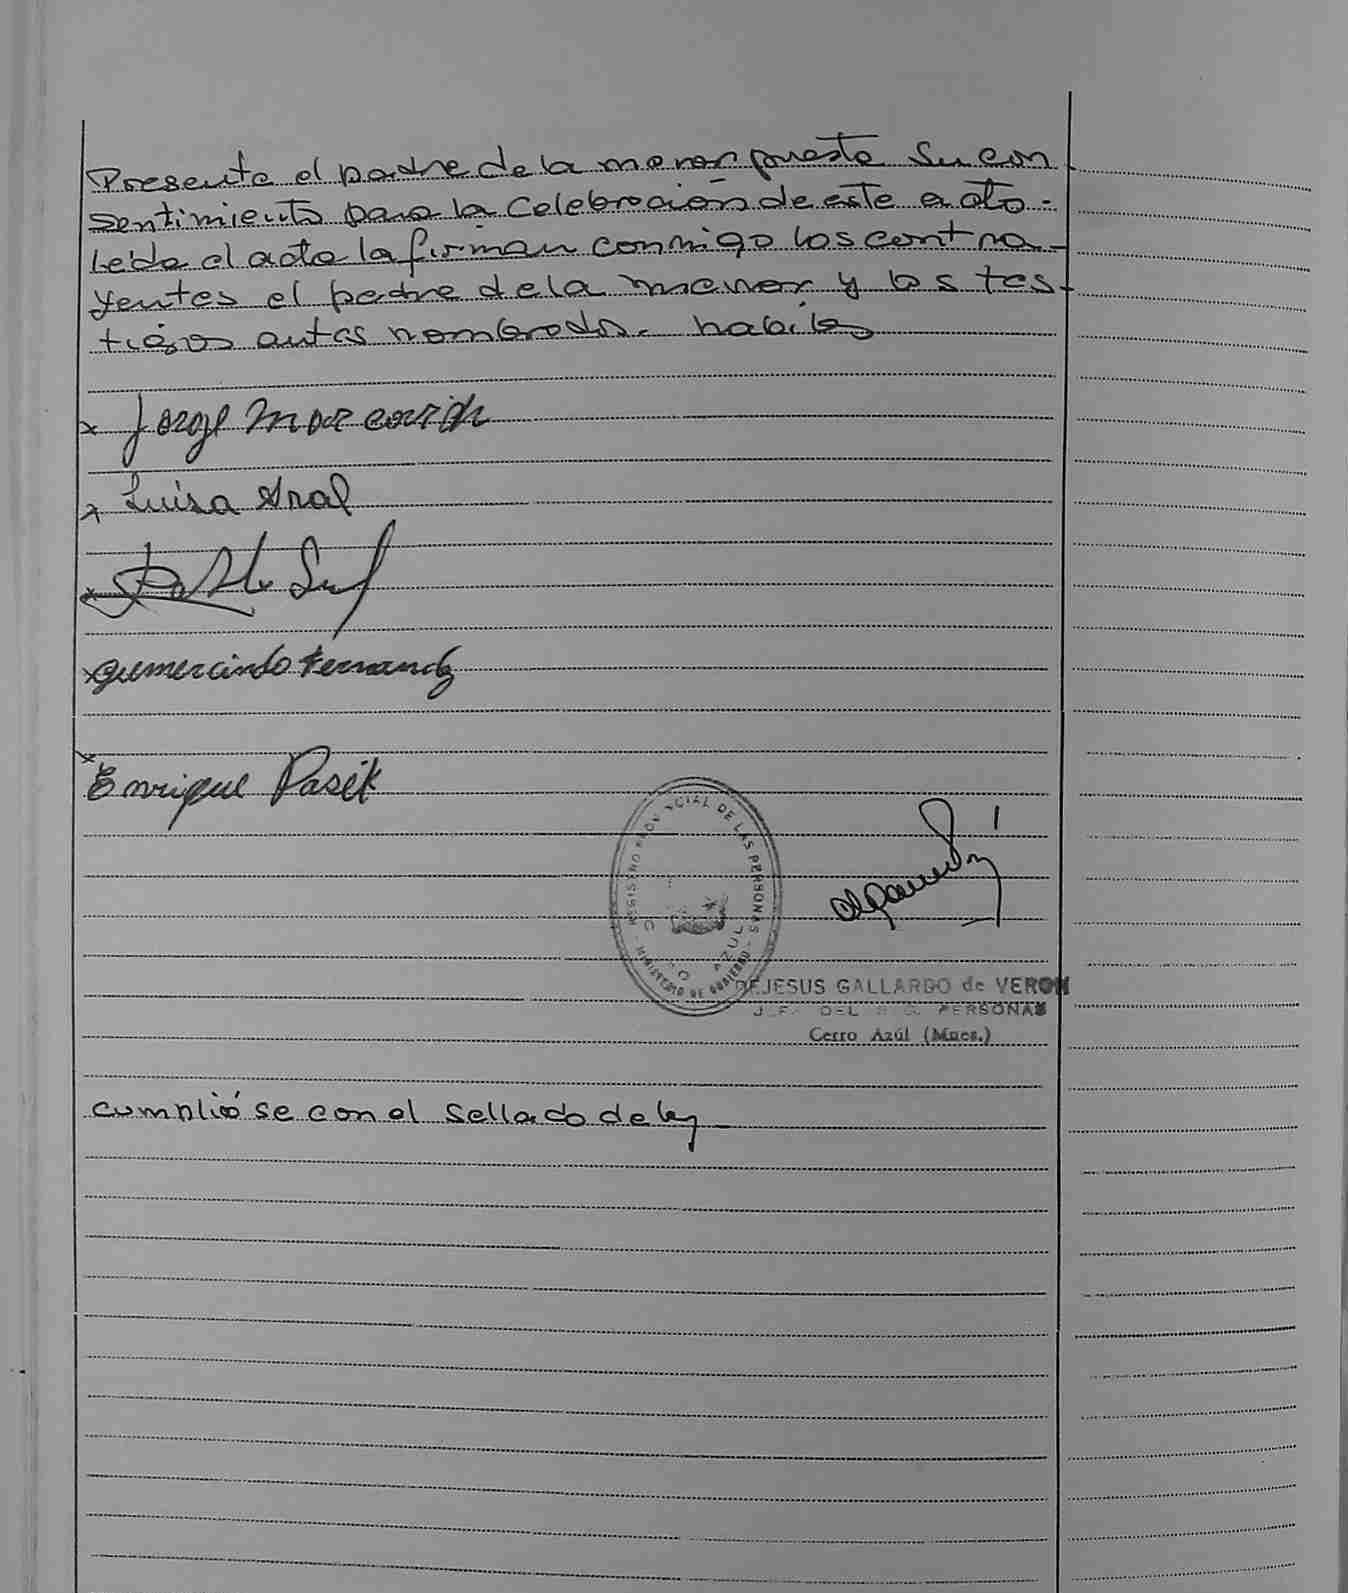 Presente el padre de la menor puesta su con
sentimiento para la celebración de este acto.
Leída el acta la firman conmigo los contra
yentes el padre de la menor y los tes-
tigos antes nombrados. habiles
x Jorge
x Luisa Sral
x Pablo
x gumercindo Fernandz
x
Enrique Pasik
REGISTRO PROVINCIAL DE LAS PERSONAS
MINISTERIO DE GOBIERNO
AZUL
DEJESUS GALLARDO de VERON
DEL PERSONAS
Cerro Azúl (Mnes.)
cumplió se con el sellado de ley